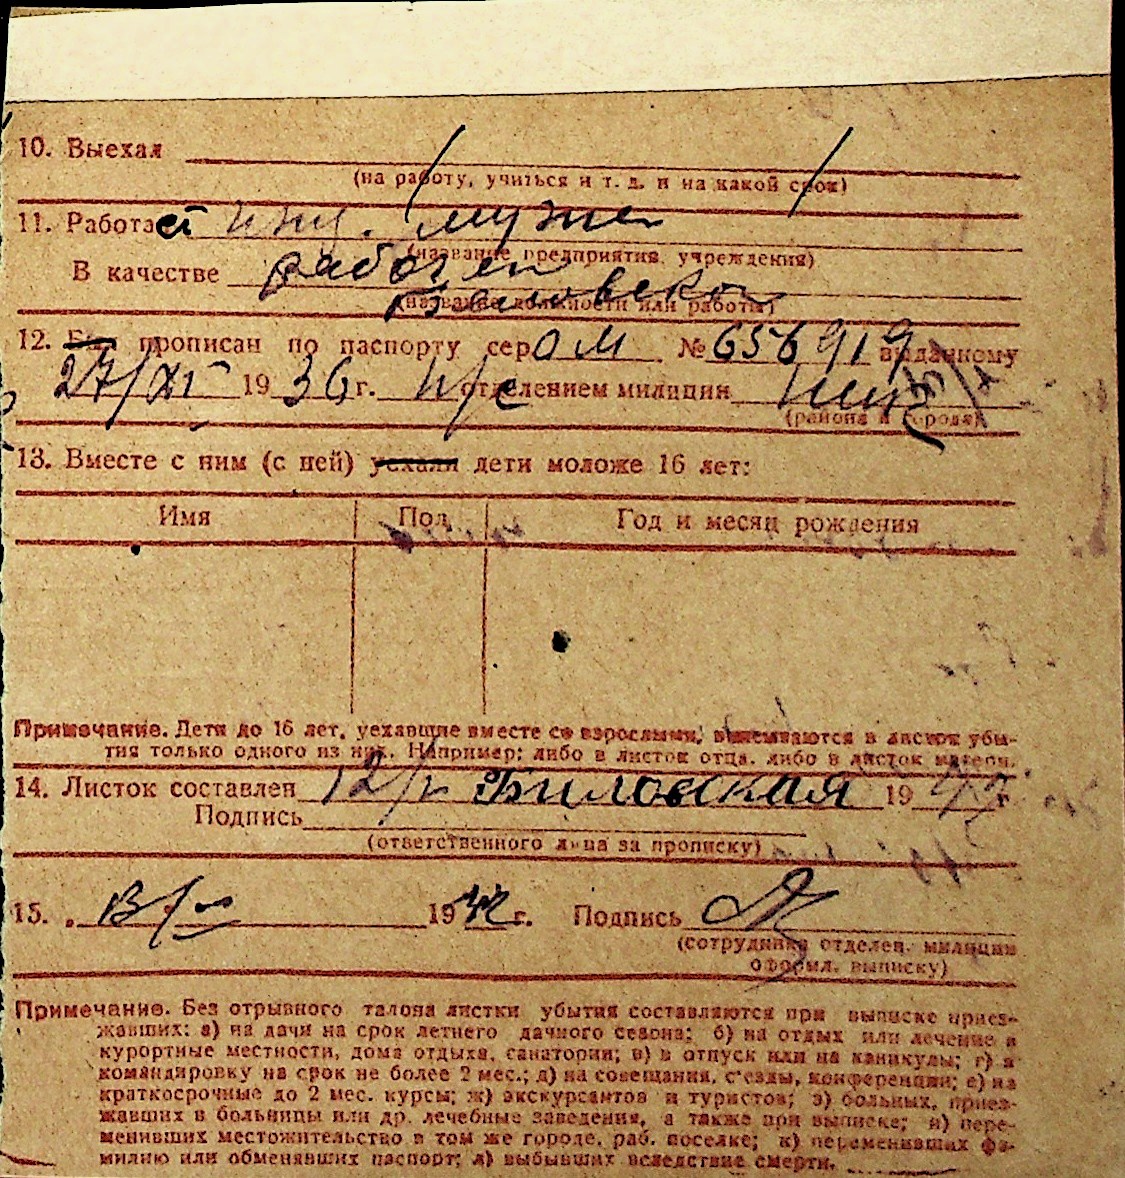 10. Выехал
(на работу, учиться и т. д. и на какой срок)
11. Работает
(название предприятия, учреждения)
В качестве
(название должности или работы)
12. Был прописан по паспорту сер ОМ № 656919 выданному
27/XI 1936 г. отделением милиции
(района и города)
13. Вместе с ним (с ней) уехали дети моложе 16 лет:
Имя Пол Год и месяц рождения
Примечание. Дети до 16 лет, уехавшие вместе со взрослыми, вписываются в листок убы-
тия только одного из них. Например: либо в листок отца, либо в листок матери.
14. Листок составлен Биловская 1942 г.
Подпись
(ответственного лица за прописку)
15. 1942 г. Подпись
(сотрудника отделен. милиции
оформл. выписку)
Примечание. Без отрывного талона листки убытия составляются при выписке приез-
жавших: а) на дачи на срок летнего дачного сезона; б) на отдых или лечение в
курортные местности, дома отдыха, санатории; в) в отпуск или на каникулы; г) в
командировку на срок не более 2 мес.; д) на совещания, съезды, конференции; е) на
краткосрочные до 2 мес. курсы; ж) экскурсантов и туристов; з) больных, приез-
жавших в больницы или др. лечебные заведения, а также при выписке; и) пере-
менивших местожительство в том же городе, раб. поселке; к) переменивших фа-
милию или обменявших паспорт; л) выбывших вследствие смерти.